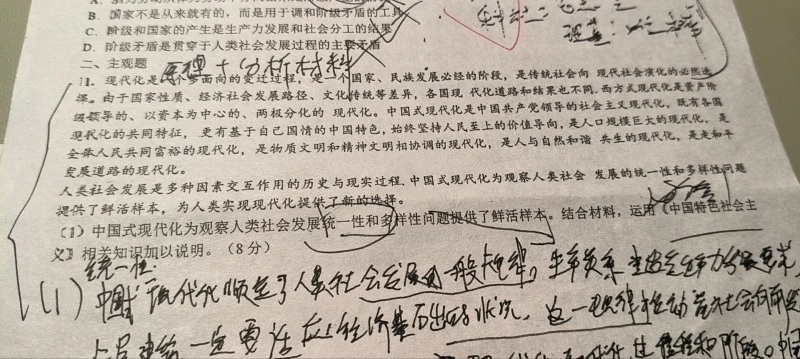 B. 国家不是从来就有的，而是用于调和阶级矛盾的工具
C. 阶级和国家的产生是生产力发展和社会分工的结果
D. 阶级矛盾是贯穿于人类社会发展过程的主要矛盾
二、主观题
原理+分析材料
11. 现代化是一个多面向的变迁过程，是一个国家、民族发展必经的阶段，是传统社会向 现代社会演化的必然选
择。由于国家性质、经济社会发展路径、文化传统等差异，各国现 代化道路和结果也不同。西方式现代化是资产阶
级领导的、以资本为中心的、两极分化的 现代化。中国式现代化是中国共产党领导的社会主义现代化，既有各国
现代化的共同特征， 更有基于自己国情的中国特色，始终坚持人民至上的价值导向，是人口规模巨大的现代化，是
全体人民共同富裕的现代化，是物质文明和精神文明相协调的现代化，是人与自然和谐 共生的现代化，是走和平
发展道路的现代化。
人类社会发展是多种因素交互作用的历史与现实过程，中国式现代化为观察人类社会 发展的统一性和多样性问题
提供了鲜活样本，为人类实现现代化提供了新的选择。
（1）中国式现代化为观察人类社会发展统一性和多样性问题提供了鲜活样本。结合材料，运用《中国特色社会主
义》相关知识加以说明。（8 分）
统一性：
(1) 中国式现代化顺应了人类社会发展的一般规律。生产关系
上层建筑一定要适应经济基础状况，这一规律